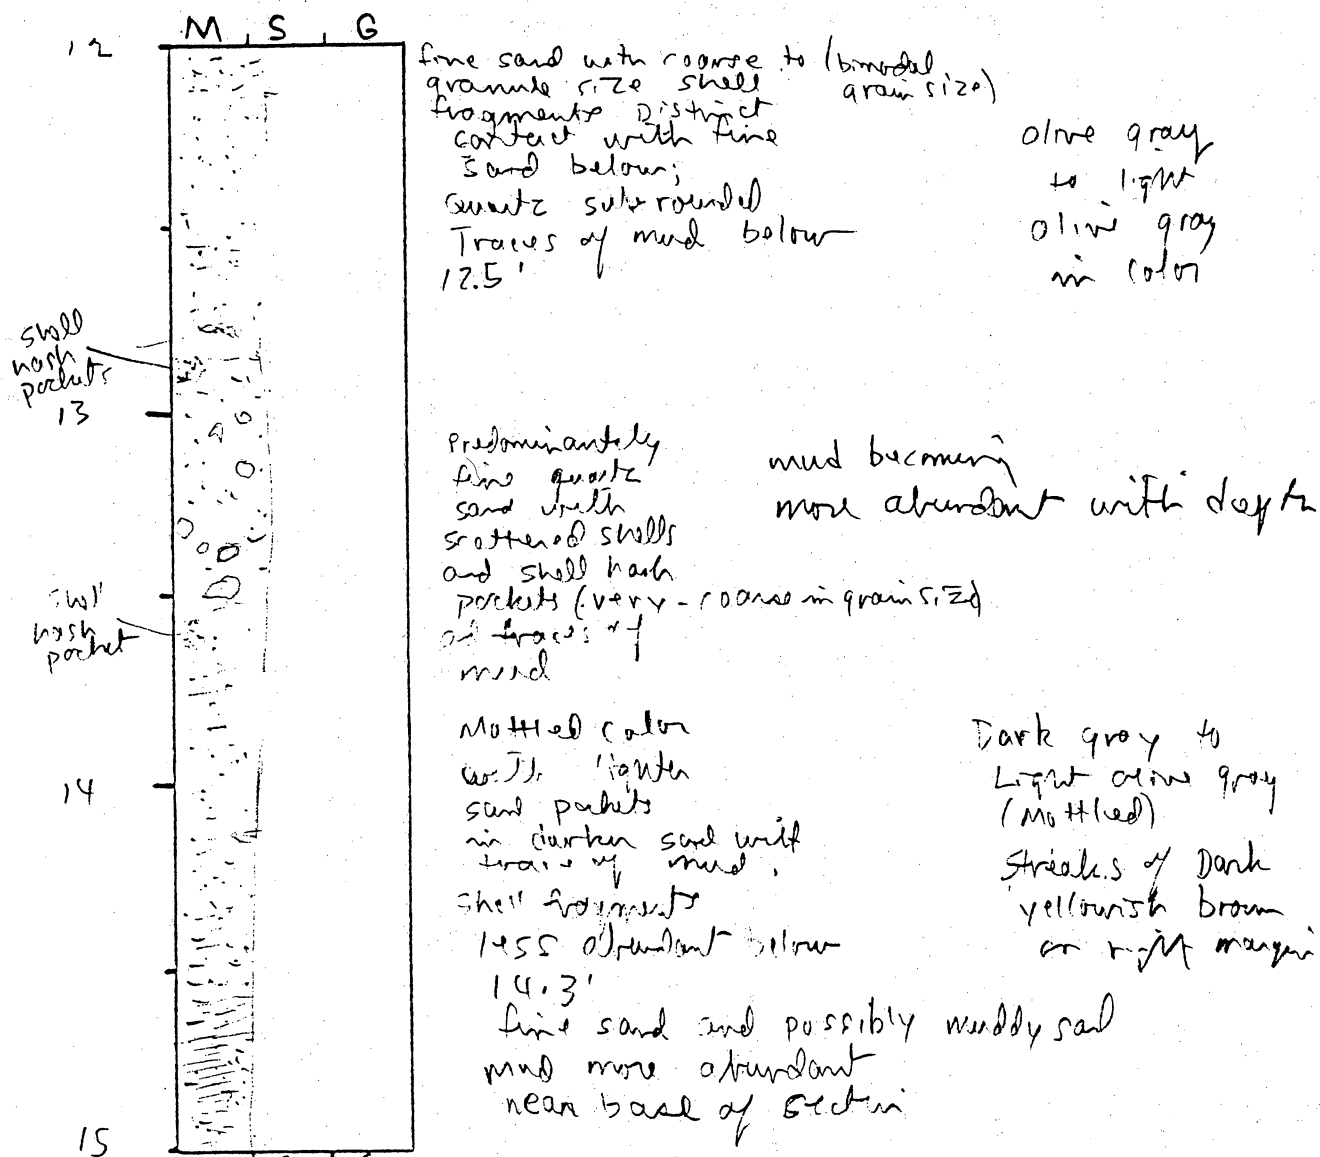 M S G
12
fine sand with coarse to (bimodal
granule size shell grain size)
fragments Distinct
contact with fine
sand below;
Quartz subrounded
Traces of mud below
12.5'
olive gray
to light
olive gray
in color
shell
hash
pockets
13
Predominantely
fine quartz
sand with
scattered shells
and shell hash
pockets (very-coarse in grain size)
traces of
mud
mud becoming
more abundant with depth
shell
hash
pocket
14
Mottled color
with lighter
sand pockets
in darker sand with
trace of mud.
shell fragments
less abundant below
14.3'
fine sand and possibly muddy sand
mud more abundant
near base of section
Dark gray to
Light olive gray
(Mottled)
Streaks of Dark
yellowish brown
on right margin
15